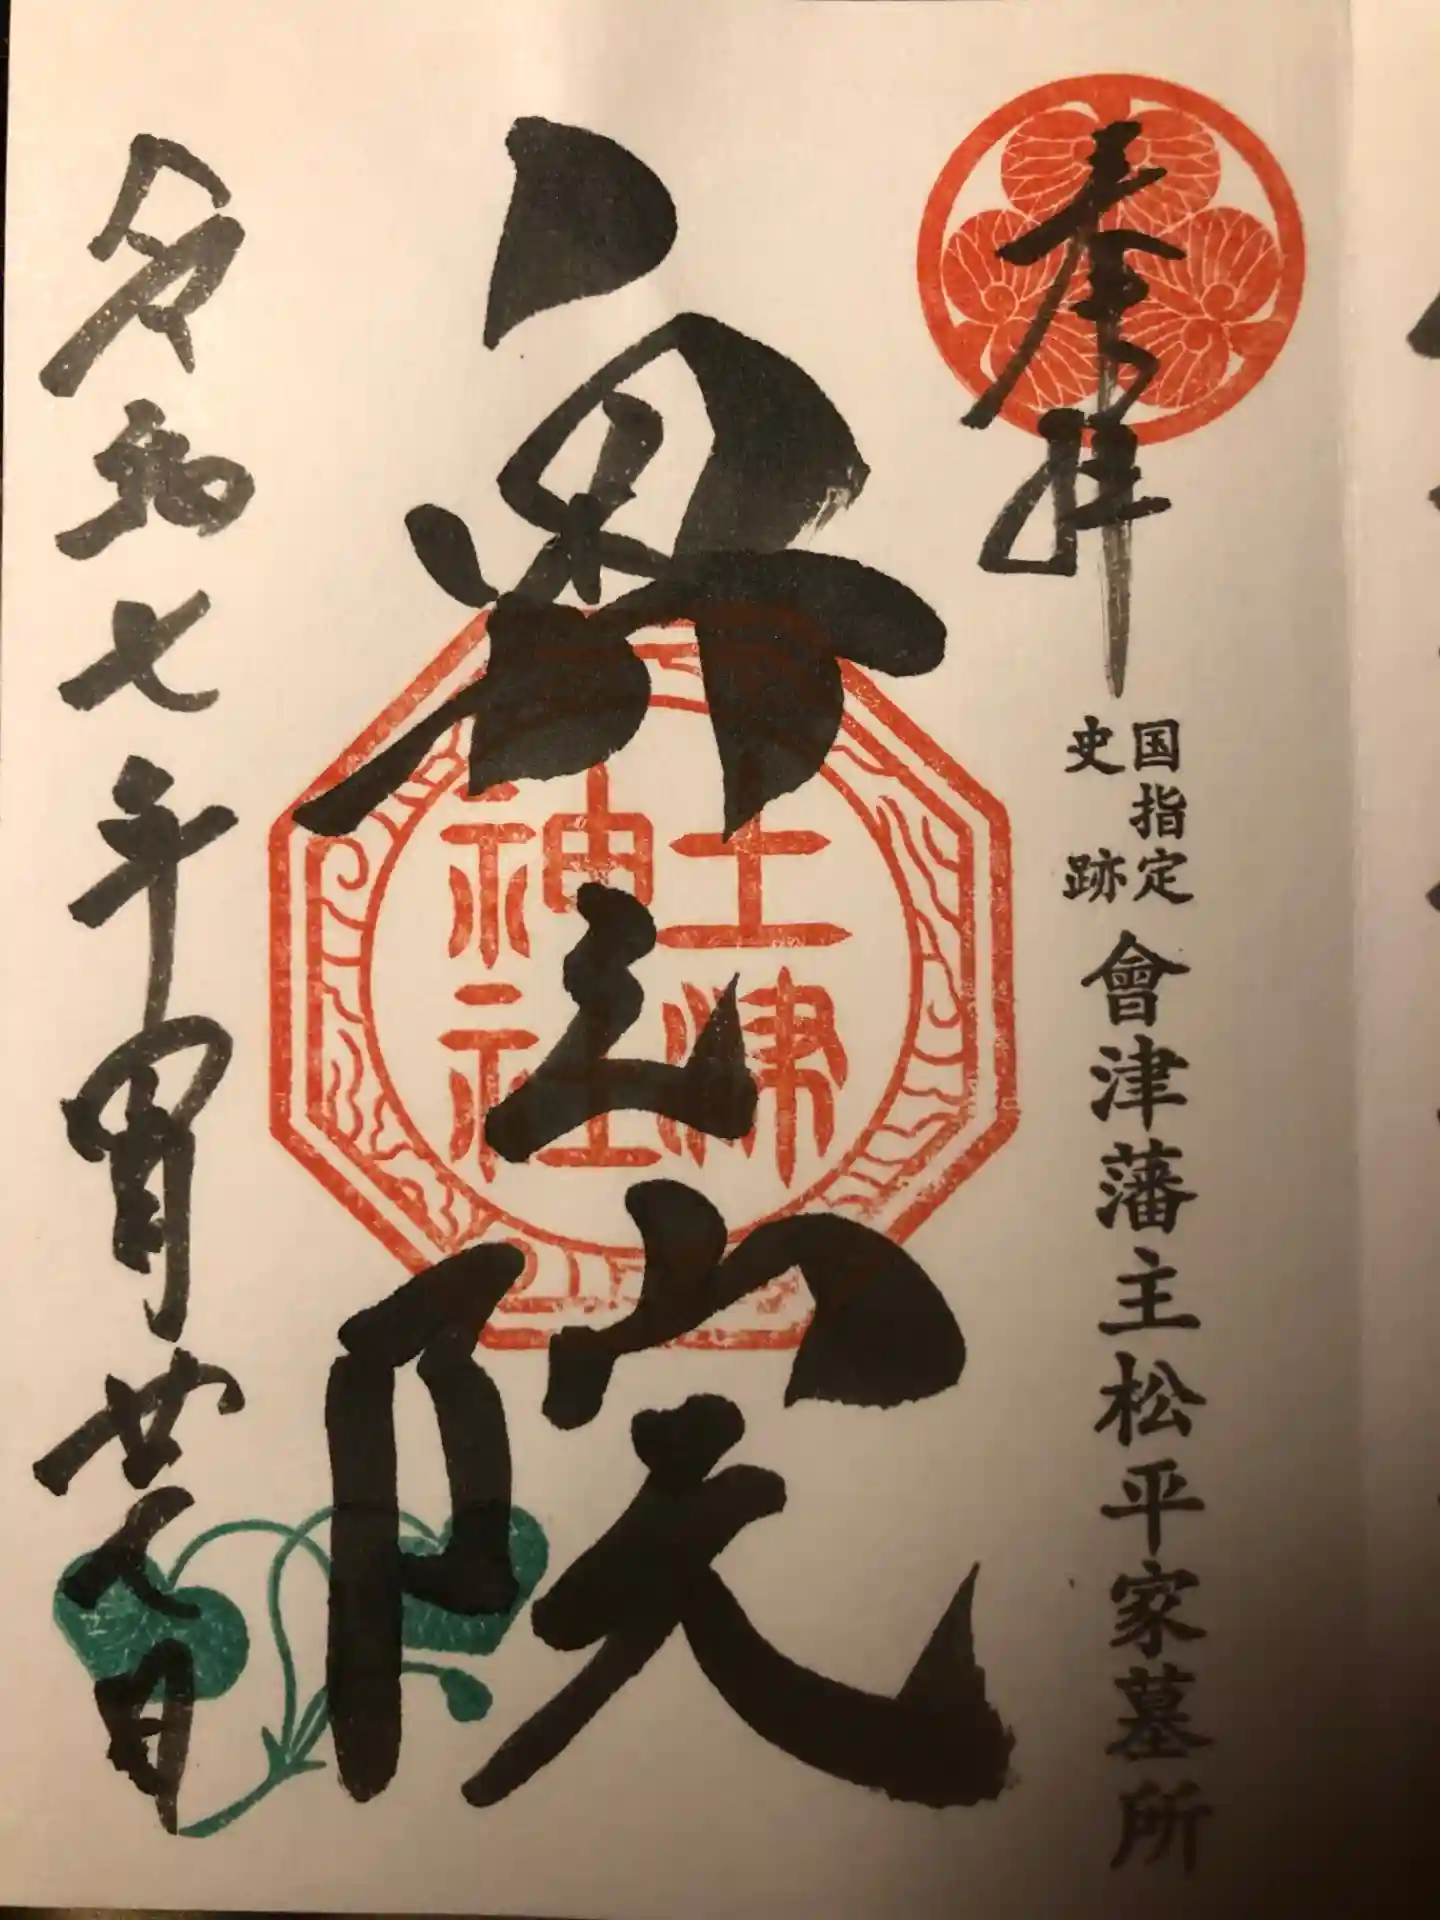 奉拝
国指定
史跡
會津藩主松平家墓所
奥之院
土津
神社
令和七年四月廿八日